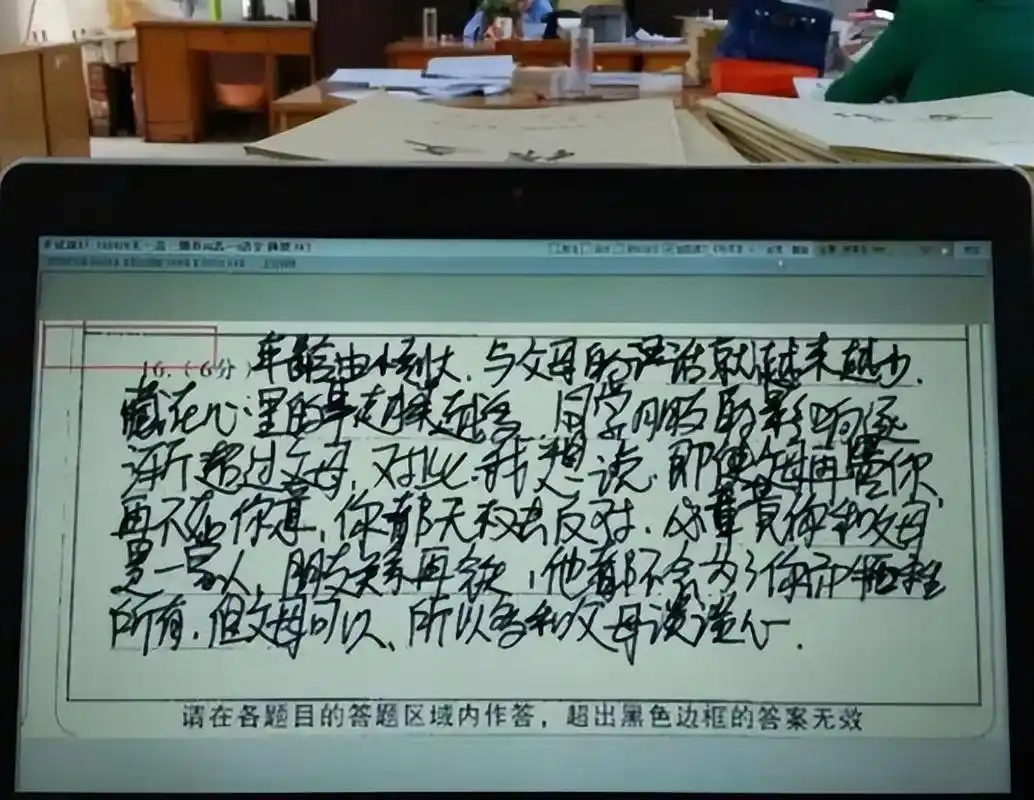 16.（6分）年龄由小到大，与父母的谈话就越来越少，
藏在心里的事越来越多，同学朋友的影响逐
渐超过父母，对此，我想说，即使父母再骂你，
再不如你意，你都无权去反对，毕竟你和父母
是一家人，朋友关系再铁，他都不会为了你而牺牲
所有，但父母可以，所以多和父母谈谈心．
请在各题目的答题区域内作答，超出黑色边框的答案无效